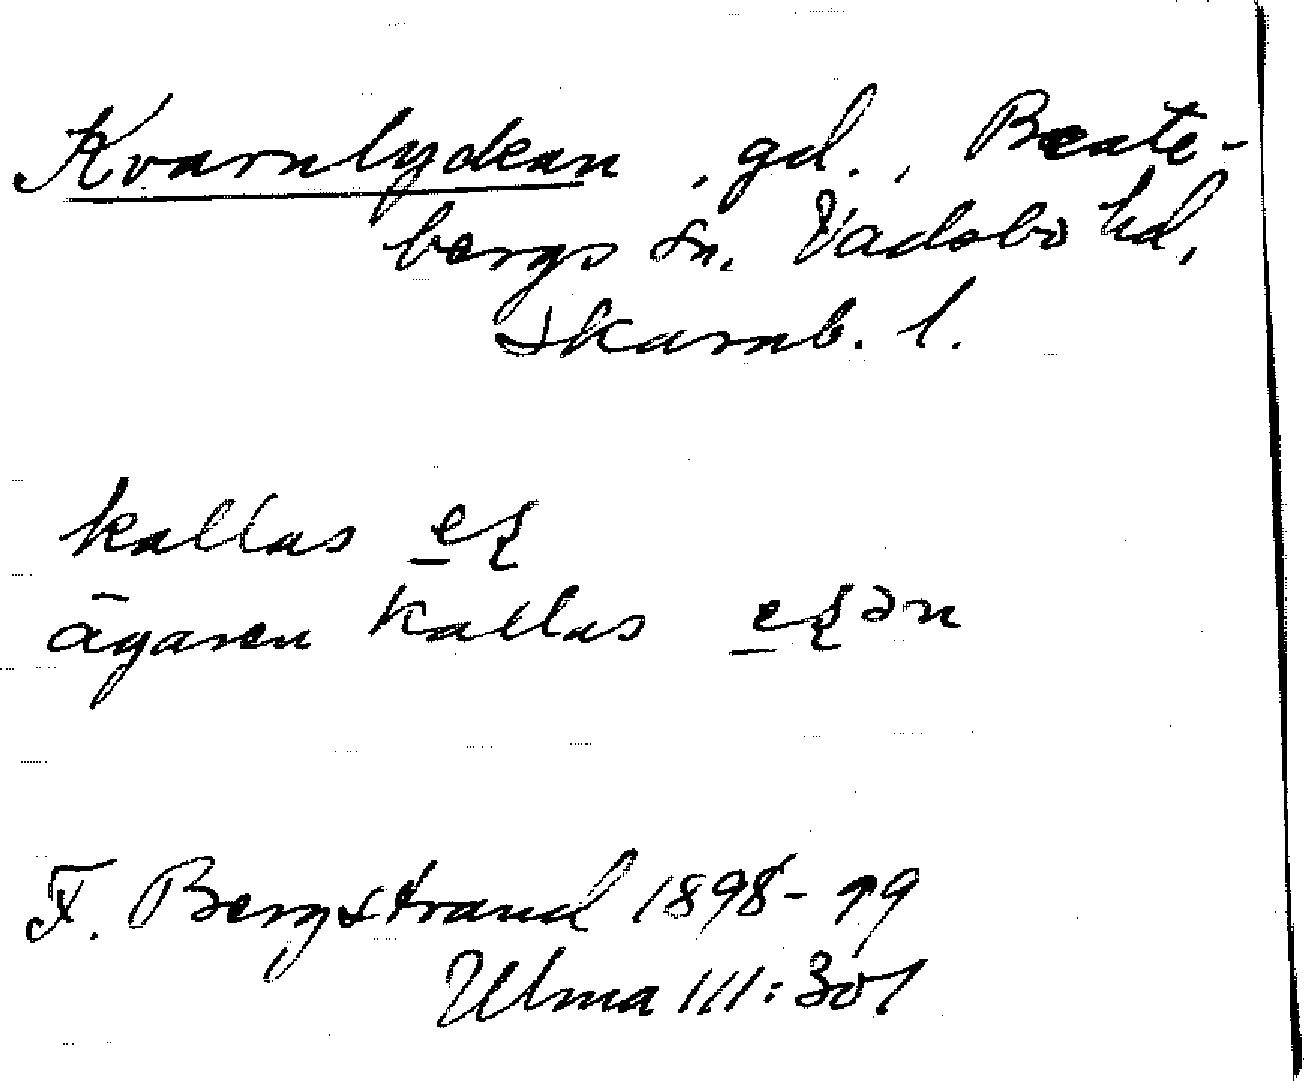 Kvarnlyckan, gd., Beate-
bergs sn. Vadsbo hd,
Skarab. l.
kallas
ägaren kallas
F. Bergstrand 1898-99
Ulma 111:301